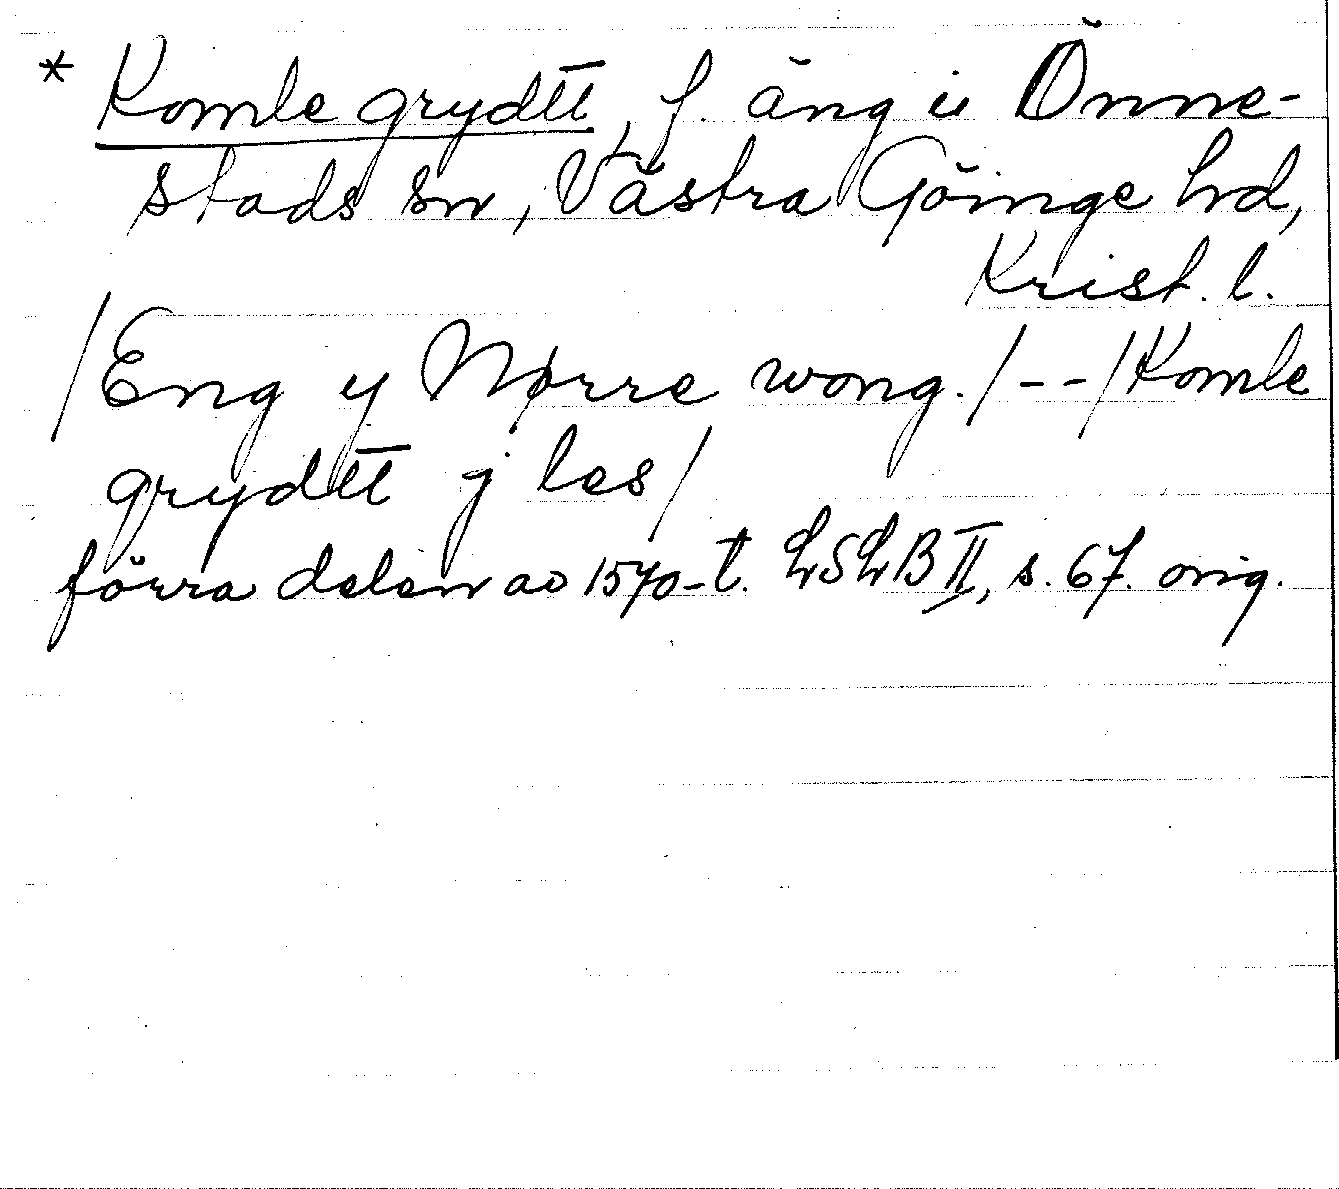 * Komle grydtt, f. äng i Önne-
stads sn, Västra Göinge hrd,
Krist. l.
/Eng y Nørre wong./--/Komle
grydtt j les/
förra delen av 1570-t. LSLB II, s. 67. orig.